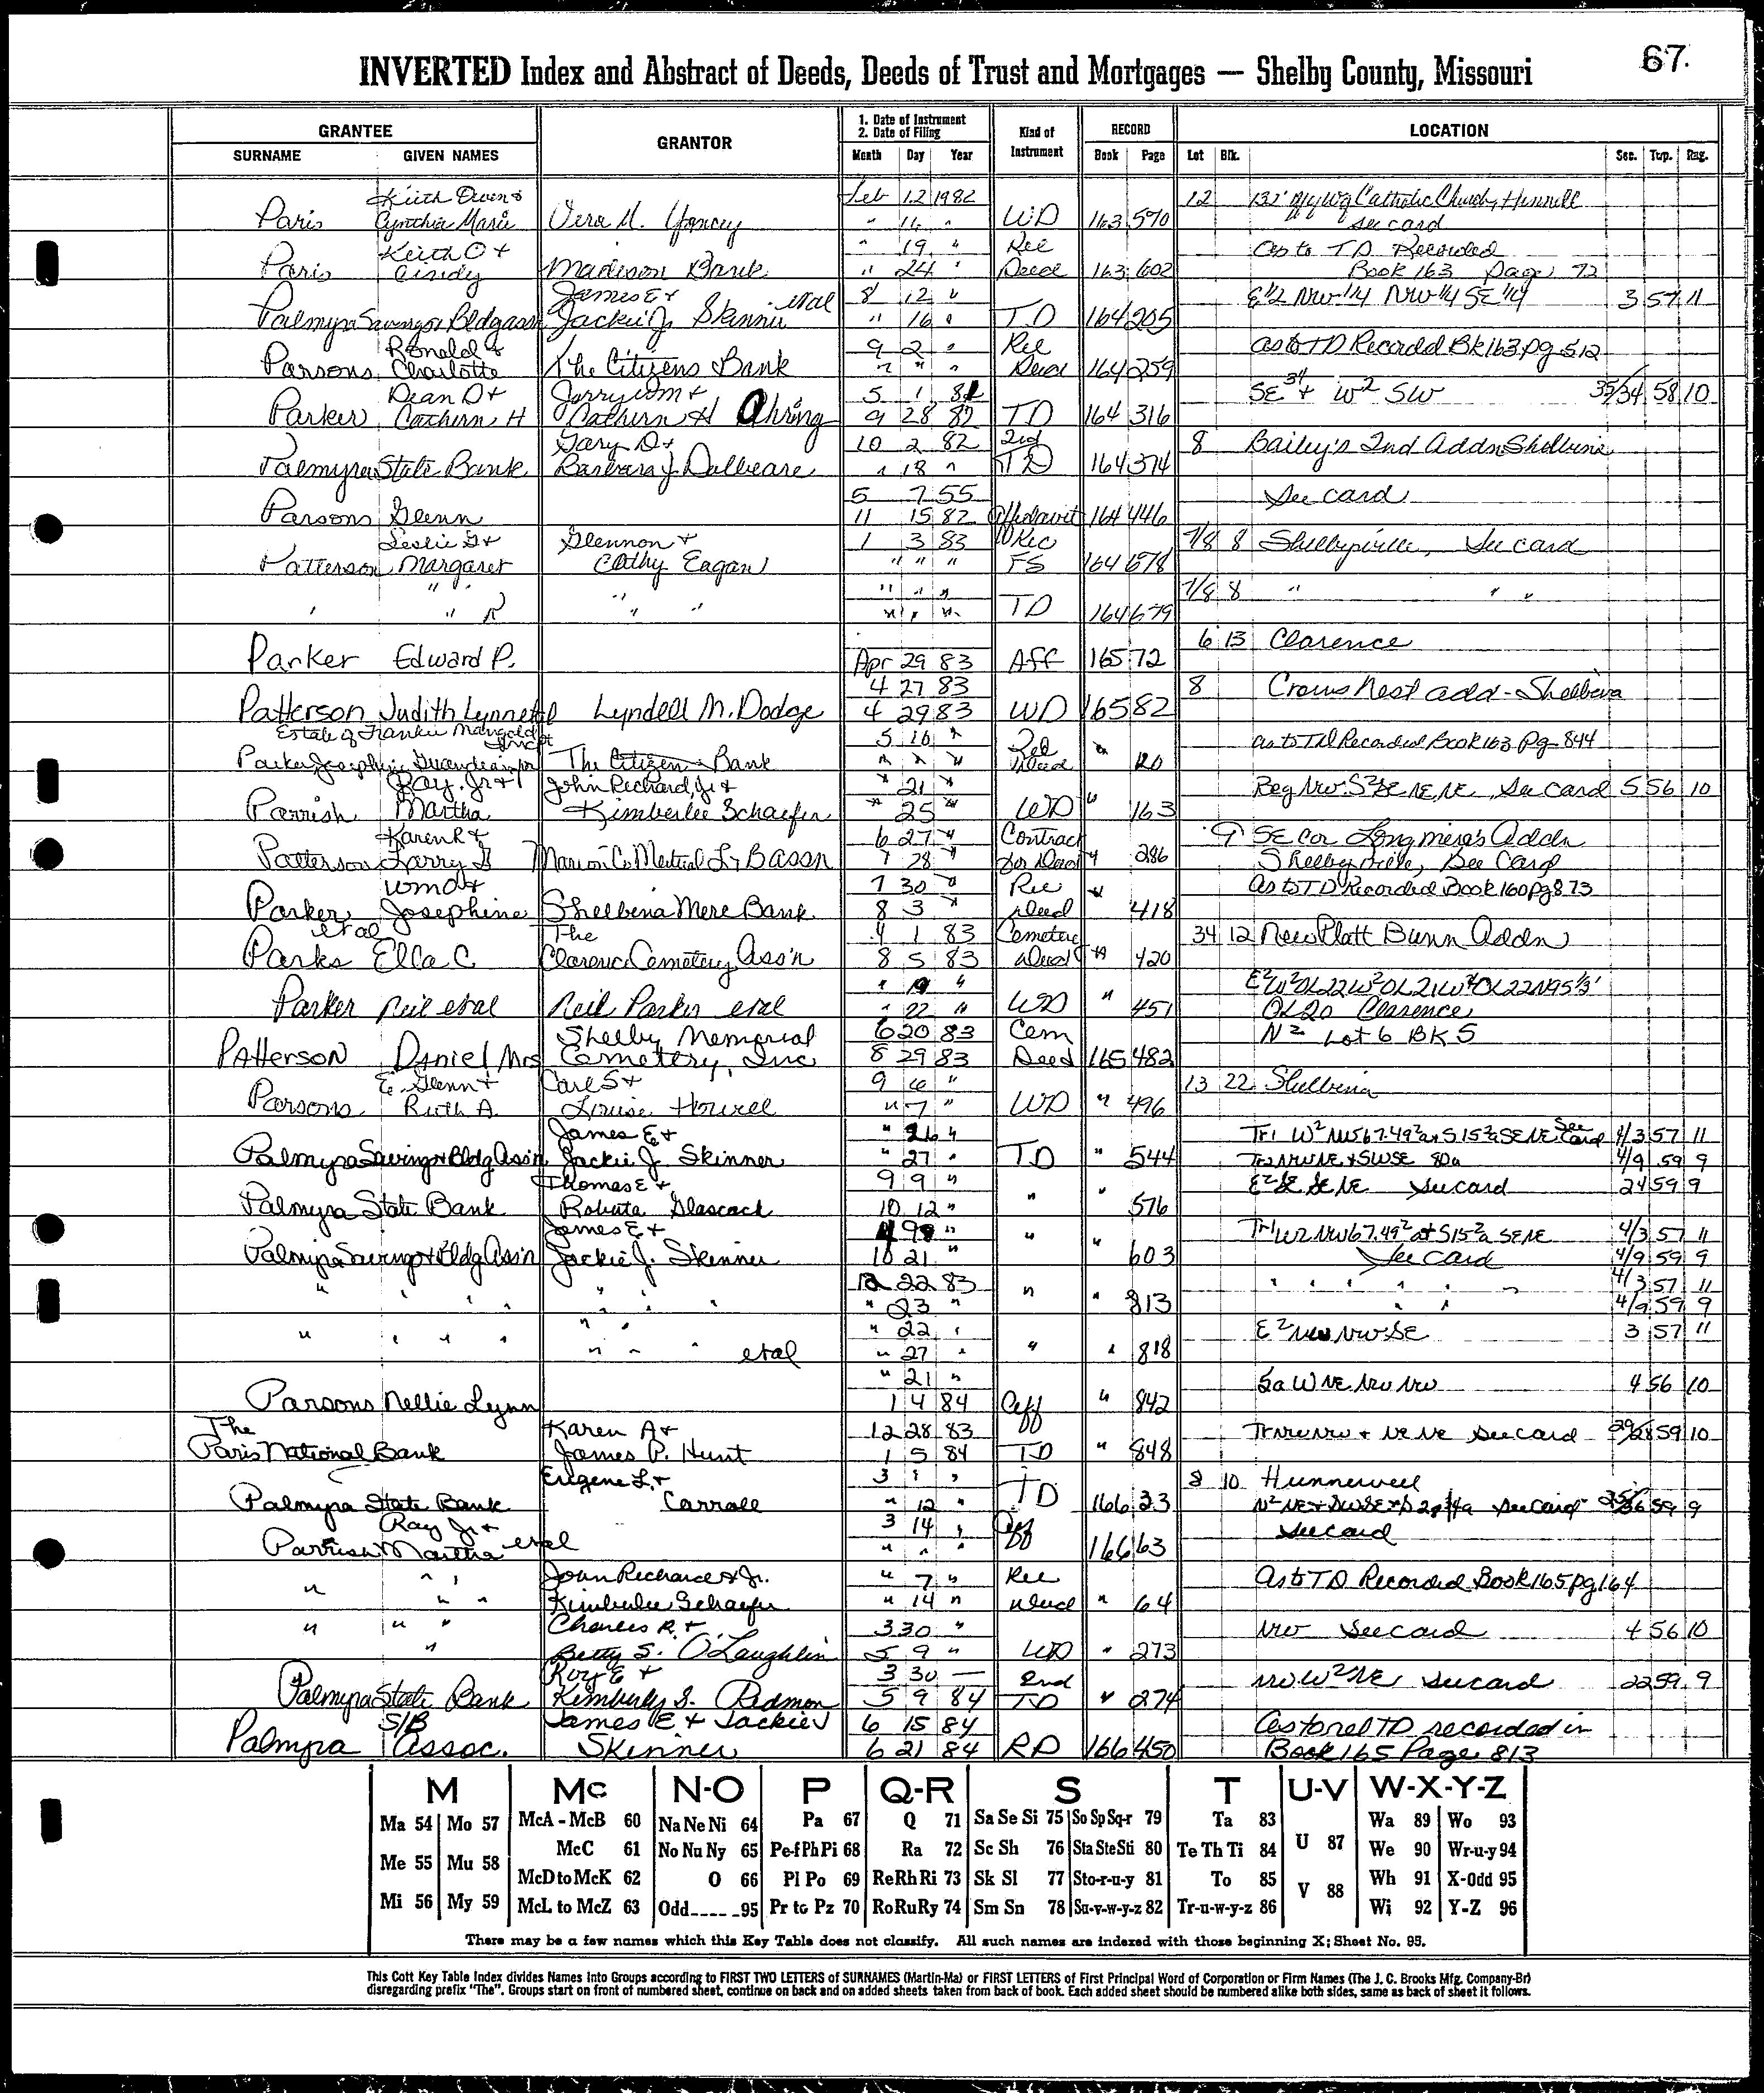 67.
INVERTED Index and Abstract of Deeds, Deeds of Trust and Mortgages — Shelby County, Missouri
GRANTEE GRANTOR 1. Date of Instrument 2. Date of Filing Kind of Instrument RECORD LOCATION
SURNAME GIVEN NAMES Month Day Year Book Page Lot Blk. Sec. Twp. Rng.
Keith Owen & Feb 12 1982 12 132' Catholic Church, Hunnell
Paris Cynthia Marie Vera M. Yancey " " WD 163 570 see card
Keith O & " 19 " Rel As to TD Recorded
Paris Cindy Madison Bank " 24 " Deed 163 602 Book 163 Page 72
James E & 8 12 " E 1/2 NW 1/4 NW 1/4 SE 1/4 3 57 11
Palmyra Savings Bldg assn Jackie J. Skinner etal " 16 " TD 164 205
Ronald & 9 2 " Rel as to TD Recorded Bk 163 pg 512
Parsons Charlotte The Citizens Bank " " " Deed 164 259
Dean D & Jerry Wm & 5 1 82 SE 34 & W2 SW 35/34 58 10
Parker Cathern H Cathern H Ohring 9 28 82 TD 164 316
Gary D & 10 2 82 2nd 8 Bailey's 2nd Addn Shelbina
Palmyra State Bank Barbara J. Dalbeare " 18 " TD 164 374
5 7 55 See card
Parsons Glenn 11 15 82 Affidavit 164 446
Leslie G & Glennon & 1 3 83 7/8 8 Shelbyville, See card
Patterson Margaret Cathy Eagan " " " FS 164 678
" " " " " 7/8 8 " " "
" " R " " " " " TD 164 679
6 13 Clarence
Parker Edward P. Apr 29 83 Aff 165 72
4 27 83 8 Crows Nest add - Shelbina
Patterson Judith Lynn etal Lyndell M. Dodge 4 29 83 WD 165 82
Estate of Frankie Mangold 5 10 " Rel as to TD Recorded Book 163 Pg 844
Parker Josephine The Citizens Bank " " " Deed " 120
Ray, Jr & John Richard, Jr & " 21 " Beg NW S2 SE NE NE See Card 5 56 10
Parrish Martha Kimberlee Schaefer " 25 " WD " 163
Karen R & 6 27 " Contract 9 SE cor Longmire's Addn
Patterson Larry G Marion Co Mutual L & B assn 7 28 " for Deed " 286 Shelbyville, See Card
Wm O & 7 30 " Rel As to TD Recorded Book 160 pg 873
Parker Josephine Shelbina Merc Bank 8 3 " Deed " 418
etal The 4 1 83 Cemetery 34 12 New Platt Bunn Addn
Parks Ella C Clarence Cemetery Ass'n 8 5 83 Deed " 420
" 19 " E2W2OL22W2OL21W2OL22N95 1/3'
Parker Neil etal Neil Parker etal " 22 " WD " 451 OL20 Clarence
Shelby Memorial 6 20 83 Cem N2 Lot 6 BK 5
Patterson Daniel Mrs Cemetery, Inc 8 29 83 Deed 165 482
E. Glenn & Carl S & 9 6 " 13 22 Shelbina
Parsons Ruth A. Louise Howell " 7 " WD " 496
James E & " 26 " Tr1 W2 NW 67.49 2a & S 15 2a SE NE See Card 4/3 57 11
Palmyra Savings & Bldg Ass'n Jackie J. Skinner " 27 " TD " 544 Tr2 NW NE & SW SE 80a 4/9 59 9
Thomas E & 9 9 " E2 SE SE NE See card 24 59 9
Palmyra State Bank Roberta Glascock 10 12 " " " 576
James E & " Tr1 W2 NW 67.49 2 at S 15 2a SE NE 4/3 57 11
Palmyra Savings & Bldg Ass'n Jackie J. Skinner 10 21 " " " 603 See card 4/9 59 9
12 22 83 " " " " " 4/3 57 11
" " " " " " " " 23 " " " 813 " " 4/9 59 9
" " " 22 " E2 NW NW SE 3 57 11
" " " " " " " etal " 27 " " " 818
" 21 " 5a W NE NW NW 4 56 10
Parsons Nellie Lynn 1 4 84 Aff " 842
The Karen A & 12 28 83 Tr NW NW & NE NE See card 29/28 59 10
Paris National Bank James P. Hunt 1 5 84 TD " 848
Eugene L. & 3 1 " 8 10 Hunnewell
Palmyra State Bank Carroll " 12 " TD 166 23 See card 59 9
Ray Jr & 3 14 " Aff See card
Parrish Martha etal " " " 166 63
" " John Richard & Jr. " 7 " Rel As to TD Recorded Book 165 pg 164
" " " Kimberlee Schaefer " 14 " Deed " 64
" " " Charles R. & 3 30 " NW See card 4 56 10
" Betty S. O'Laughlin 5 9 " WD " 273
Roy E & 3 30 — 2nd NW W2 NE See card 22 59 9
Palmyra State Bank Kimberly S. Redmon 5 9 84 TD " 274
S/B James E & Jackie J 6 15 84 As to rel TD recorded in
Palmyra Assoc. Skinner 6 21 84 RD 166 450 Book 165 Page 813
M Mc N-O P Q-R S T U-V W-X-Y-Z
Ma 54 Mo 57 McA - McB 60 Na Ne Ni 64 Pa 67 Q 71 Sa Se Si 75 So Sp Sq-r 79 Ta 83 Wa 89 Wo 93
McC 61 No Nu Ny 65 Pe-f Ph Pi 68 Ra 72 Sc Sh 76 Sta Ste Sti 80 Te Th Ti 84 U 87 We 90 Wr-u-y 94
Me 55 Mu 58 McD to McK 62 O 66 Pl Po 69 Re Rh Ri 73 Sk Sl 77 Sto-r-u-y 81 To 85 V 88 Wh 91 X-Odd 95
Mi 56 My 59 McL to McZ 63 Odd----95 Pr to Pz 70 Ro Ru Ry 74 Sm Sn 78 Su-v-w-y-z 82 Tr-u-w-y-z 86 Wi 92 Y-Z 96
There may be a few names which this Key Table does not classify. All such names are indexed with those beginning X; Sheet No. 95.
This Cott Key Table Index divides Names into Groups according to FIRST TWO LETTERS of SURNAMES (Martin-Ma) or FIRST LETTERS of First Principal Word of Corporation or Firm Names (The J. C. Brooks Mfg. Company-Br)
disregarding prefix "The". Groups start on front of numbered sheet, continue on back and on added sheets taken from back of book. Each added sheet should be numbered alike both sides, same as back of sheet it follows.